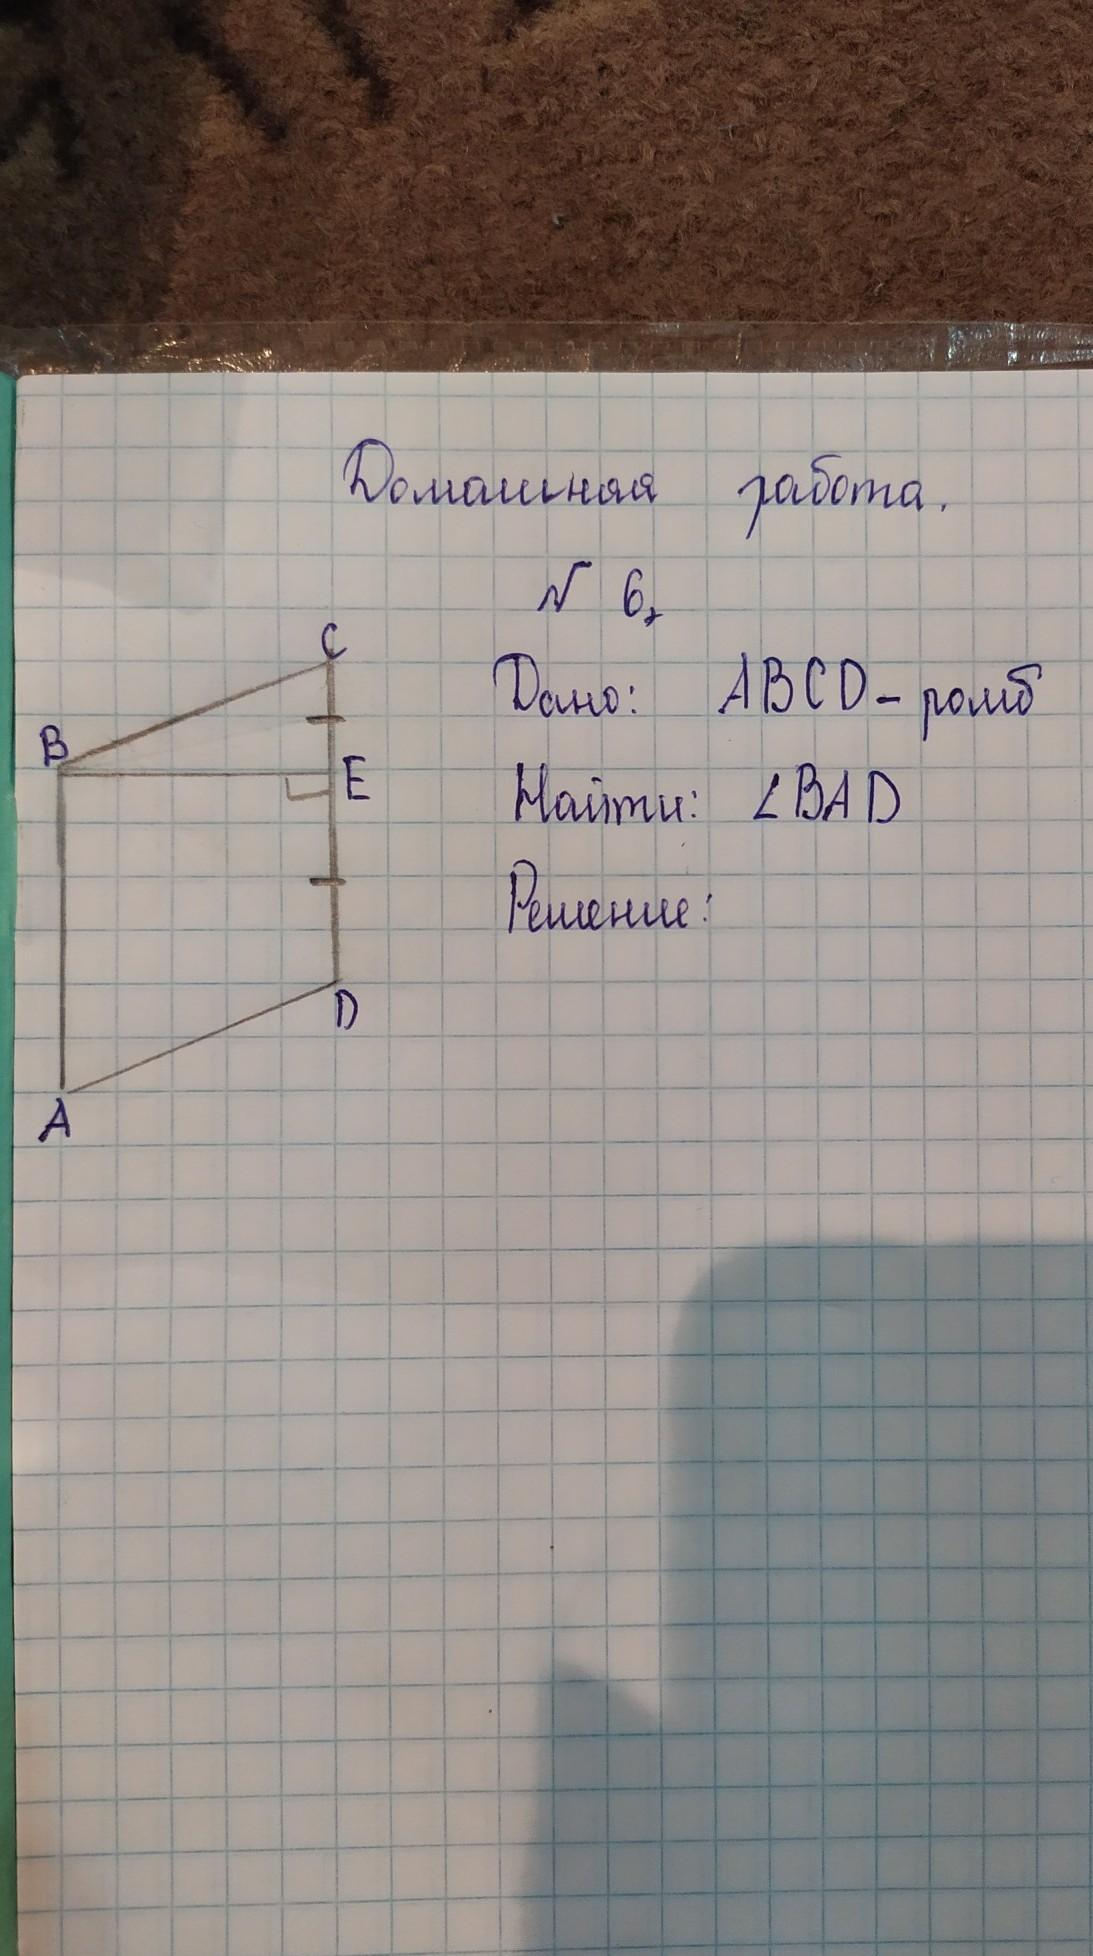 Домашняя работа.
№ 6,
Дано: ABCD - ромб
Найти: ∠BAD
Решение:
C
B
E
D
A